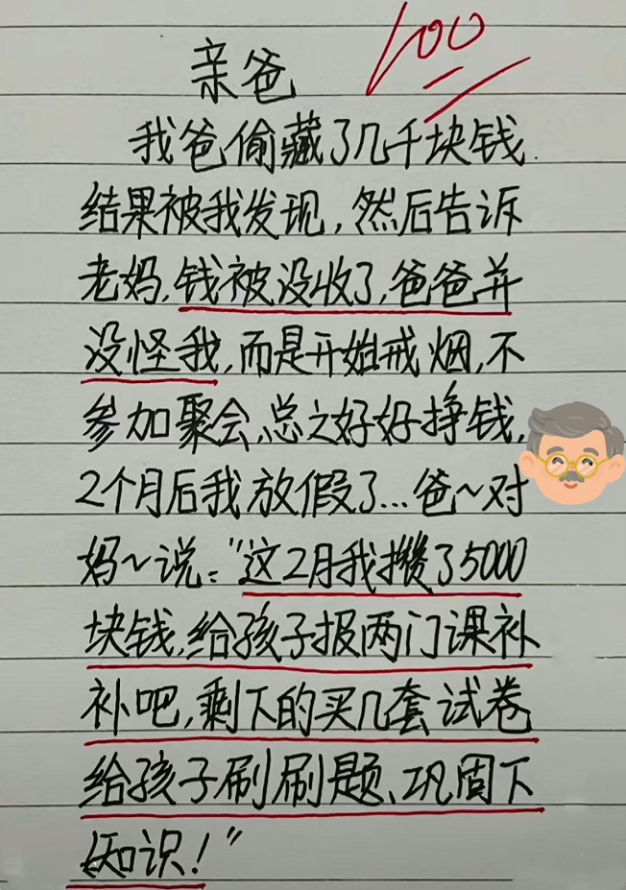 100
亲爸
我爸偷藏了几千块钱.
结果被我发现,然后告诉
老妈,钱被没收了,爸爸并
没怪我,而是开始戒烟,不
参加聚会,总之好好挣钱,
2个月后我放假了...爸~对
妈~说:“这2月我攒了5000
块钱,给孩子报两门课补
补吧,剩下的买几套试卷
给孩子刷刷题、巩固下
知识!”